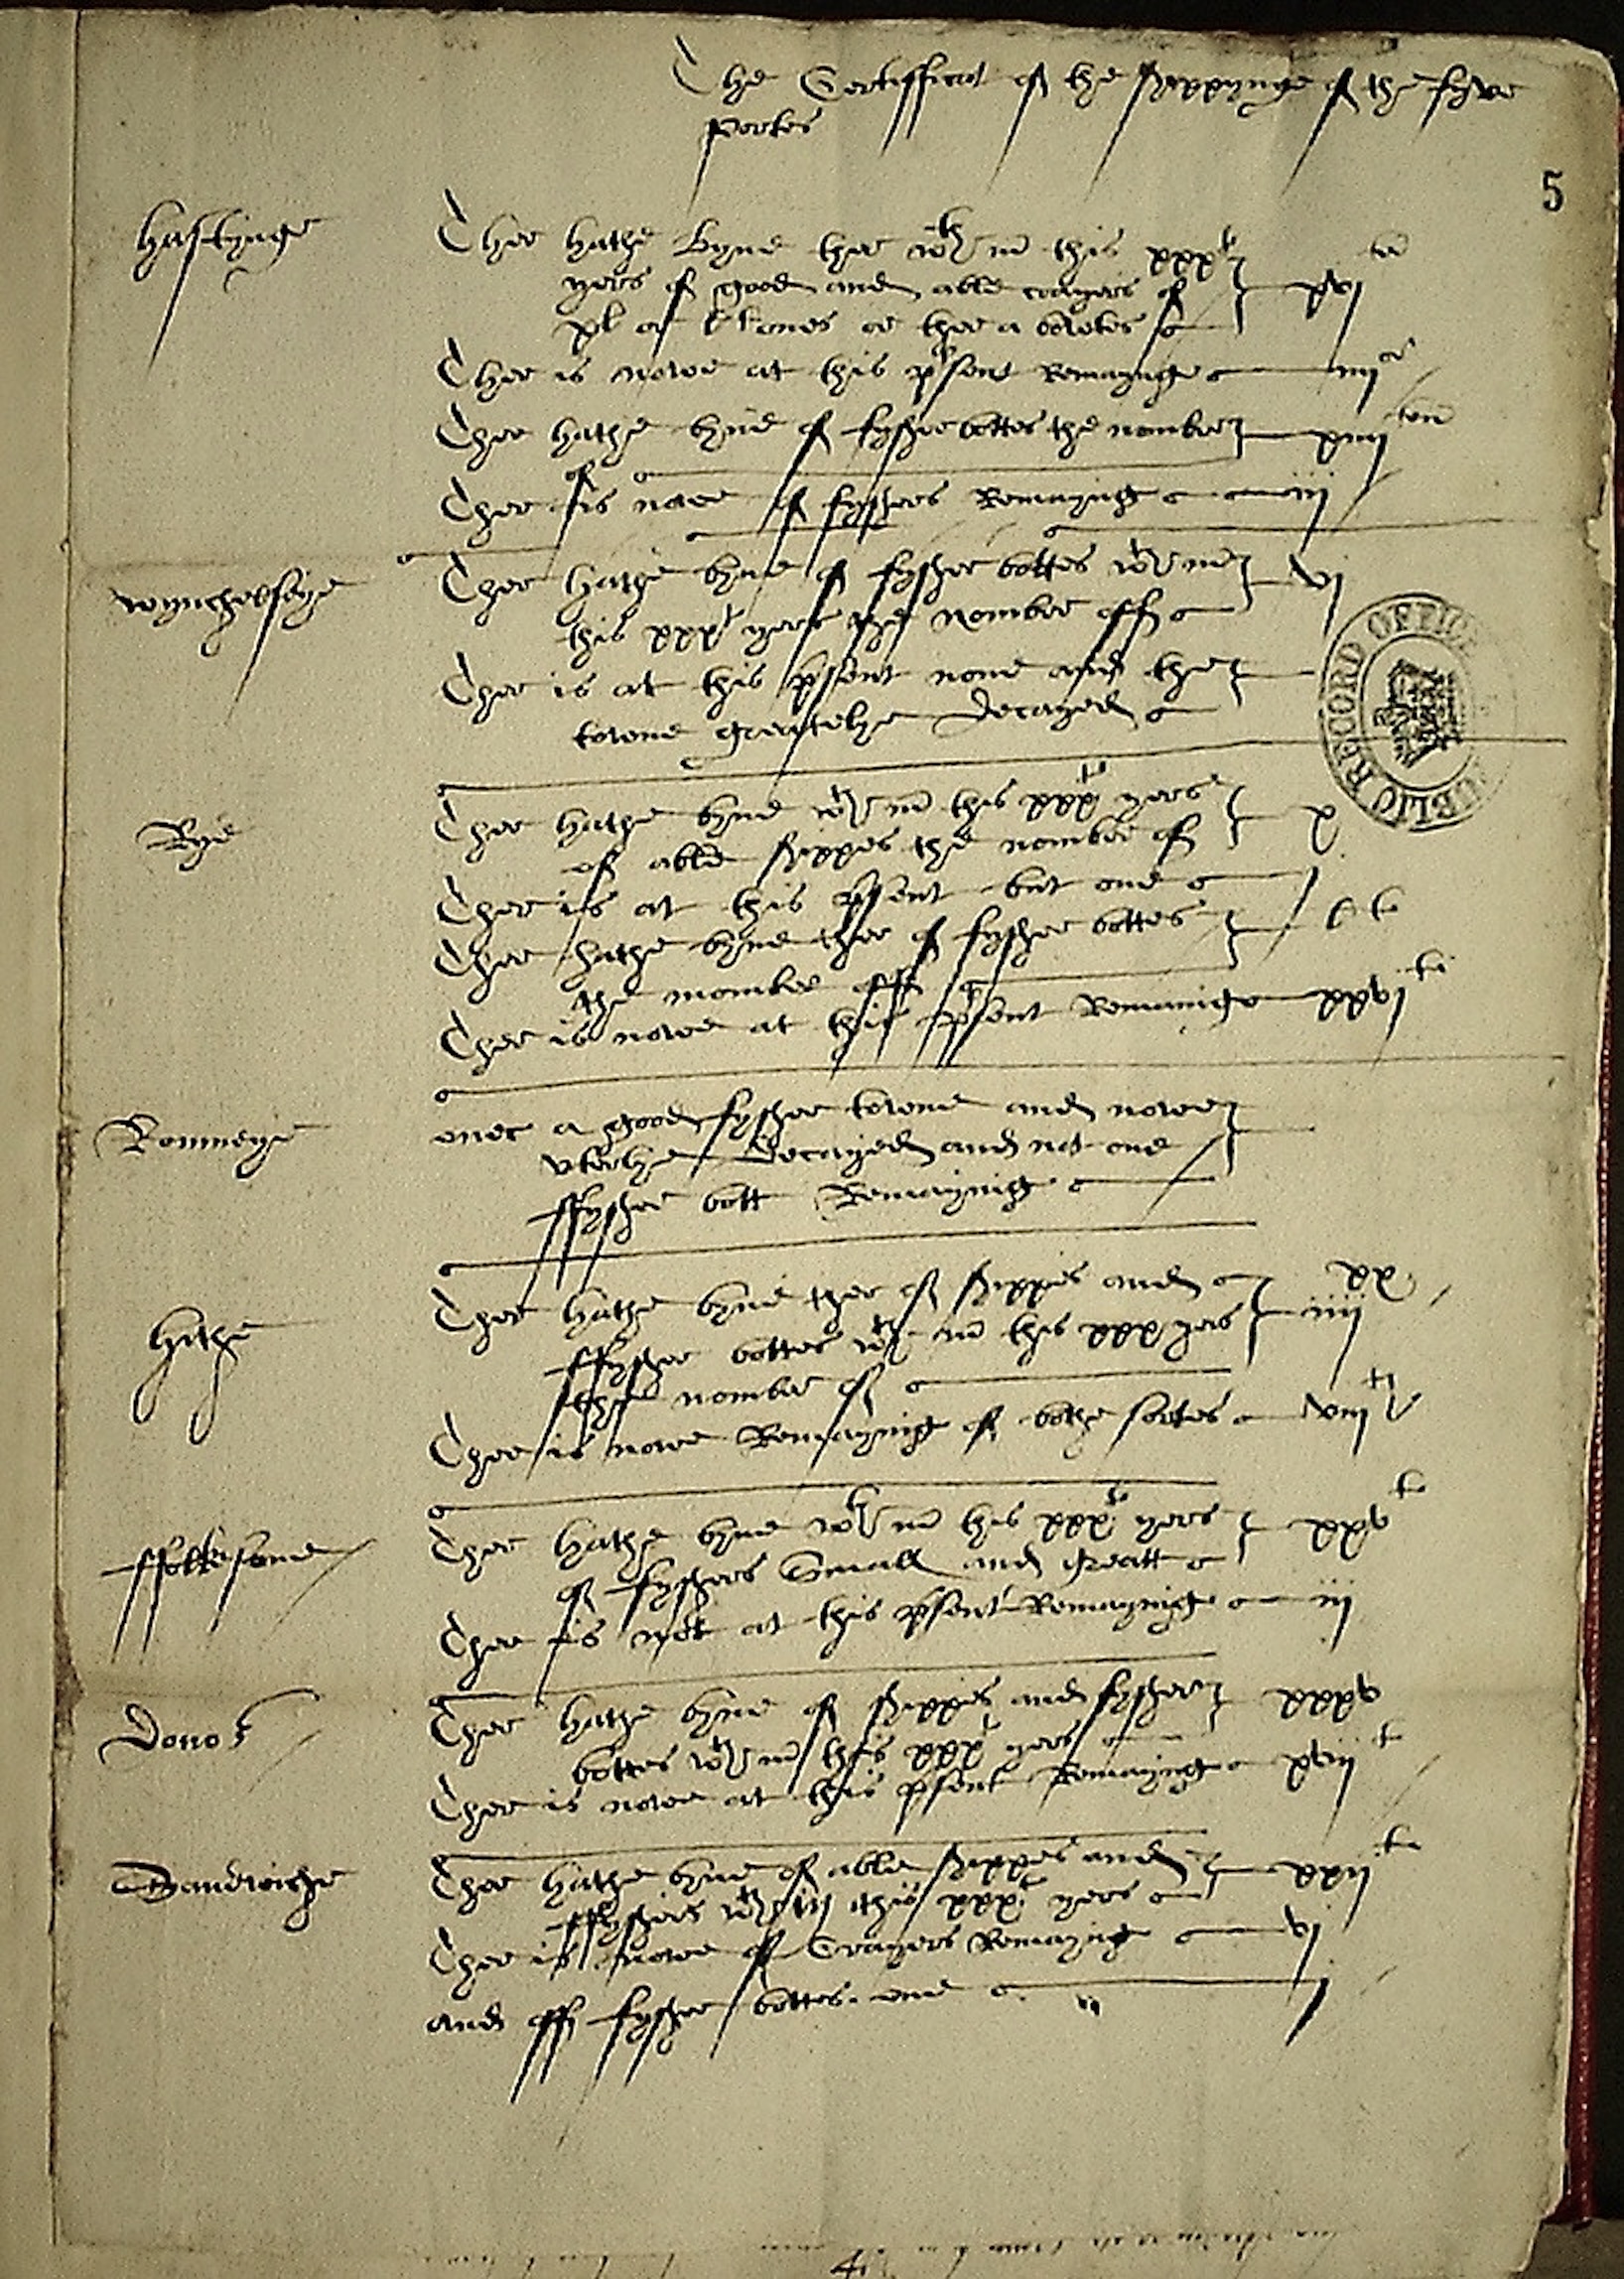 The Certifficat of the shippynge of the fyve
portes
5
hastynge
Ther hathe byne ther wth in this xxxti
yers of good and able crayers of
xl or l tones or ther a bowtes
xvi ten
Ther is nowe at this psent Remaynge iiijor
Ther hathe byne of fyssher bottes the nomber
of
xiiij ten
Ther is nowe of fysshers Remaynge iij
wynchelseye
Ther hathe byne of fyssher bottes wth in
this xxxti yers the nomber off
vi
Ther is at this psent none and the
towne greatelye decayed
PUBLIC RECORD OFFICE
Rye
Ther hathe byne wth in this xxxti yers
of able shippes the nomber of
x
Ther is at this psent but one j
Ther hathe byne ther of fyssher bottes
the nomber off
l ti
Ther is nowe at this psent Remainge xxvj ti
Romneye
ones a good fyssher towne and nowe
uterlye decayed and not one
ffyssher bott Remaynig
hithe
Ther hathe byne ther of shippes and
ffyssher bottes wth in this xxx yers
the nomber of
xx
iiij
Ther is nowe Remaynig of bothe sortes viij
ffolkesone
Ther hathe byne wth in this xxxti yers
of fysshers Small and greatt
xxv ti
Ther is not at this psent Remaynige iij
Dover
Ther hathe byne of shippes and fyssher
bottes wth in this xxxti yers
xxxv
Ther is nowe at this psent Remaynge xviij t
Sandwiche
Ther hathe byne of able shippes and
ffysshers wth in this xxxti yers
xxij ti
Ther is nowe of Crayers Remaynge vj
and off fyssher bottes one j